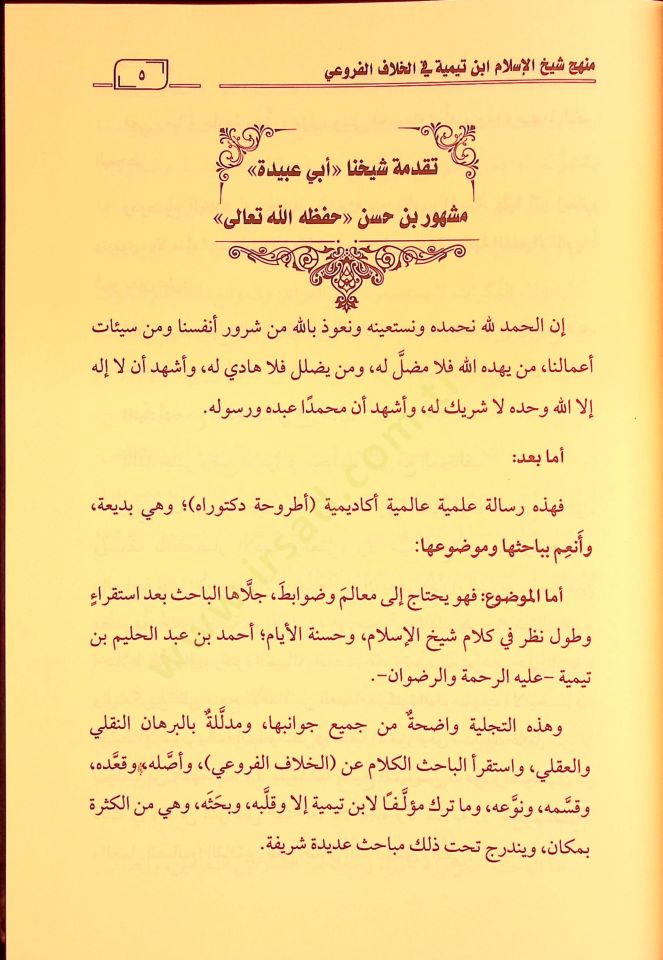 منهج شيخ الإسلام ابن تيمية في الخلاف الفروعي
٥
تقدمة شيخنا «أبي عبيدة»
مشهور بن حسن «حفظه الله تعالى»
إن الحمد لله نحمده ونستعينه ونعوذ بالله من شرور أنفسنا ومن سيئات
أعمالنا، من يهده الله فلا مضلَّ له، ومن يضلل فلا هادي له، وأشهد أن لا إله
إلا الله وحده لا شريك له، وأشهد أن محمدًا عبده ورسوله.
أما بعد:
فهذه رسالة علمية عالمية أكاديمية (أطروحة دكتوراه)؛ وهي بديعة،
وأَنعِم بباحثها وموضوعها:
أما الموضوع: فهو يحتاج إلى معالمَ وضوابطَ، جلَّاها الباحث بعد استقراءٍ
وطول نظر في كلام شيخ الإسلام، وحسنة الأيام؛ أحمد بن عبد الحليم بن
تيمية -عليه الرحمة والرضوان-.
وهذه التجلية واضحةٌ من جميع جوانبها، ومدلَّلةٌ بالبرهان النقلي
والعقلي، واستقرأ الباحث الكلام عن (الخلاف الفروعي)، وأصَّله، وقعَّده،
وقسَّمه، ونوَّعه، وما ترك مؤلَّفًا لابن تيمية إلا وقلَّبه، وبحَثَه، وهي من الكثرة
بمكان، ويندرج تحت ذلك مباحث عديدة شريفة.
www.irsad.com.tr